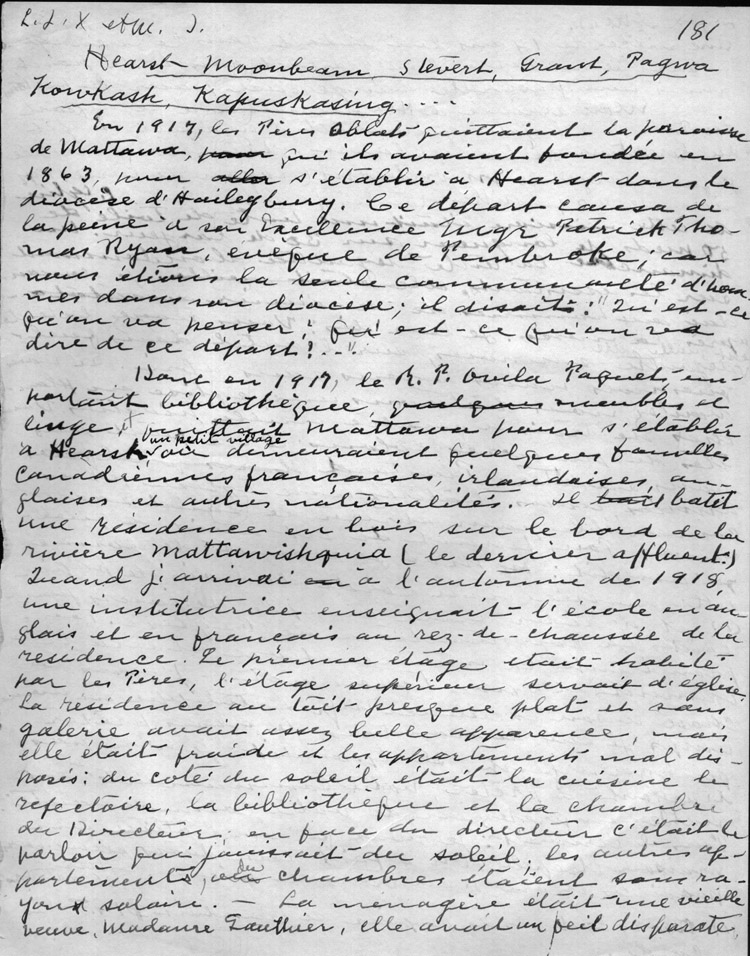 L. J. X et M. J. 181
Hearst Moonbeam, Stevert, Grant, Pagwa
Kowkash, Kapuskasing....
En 1917, les Pères Oblats quittaient la paroisse
de Mattawa, pour qu'ils avaient fondée en
1863, pour aller s'établir à Hearst dans le
diocèse d'Haileybury. Ce départ causa de
la peine à son Excellence Mgr Patrick Tho-
mas Ryan, évêque de Pembroke; car
nous étions la seule communauté d'hom-
mes dans son diocèse; il disait: "Qu'est-ce
qu'on va penser! Qu'est-ce qu'on va
dire de ce départ?..."
Donc en 1917, le R. P. Ovila Paquet, em-
portant bibliothèque, quelques meubles et
linge, et quittait Mattawa pour s'établir
à Hearst, un petit village où demeuraient quelques familles
canadiennes françaises, irlandaises, an-
glaises et autres nationalités. Il bâtit
une résidence en bois sur le bord de la
rivière Mattawishquia (le dernier affluent.)
Quand j'arrivai en à l'automne de 1918,
une institutrice enseignait l'école en an-
glais et en français au rez-de-chaussée de la
résidence. Le premier étage était habité
par les Pères, l'étage supérieur servait d'église.
La résidence au toit presque plat et sans
galerie avait assez belle apparence, mais
elle était froide et les appartements mal dis-
posés: du coté du soleil était la cuisine le
réfectoire, la bibliothèque et la chambre
du Directeur; en face du directeur c'était le
parloir qui jouissait du soleil, les autres ap-
partements, ou chambres étaient sans ra-
yon solaire. — La ménagère était une vieille
veuve, Madame Gauthier, elle avait un oeil disparate,